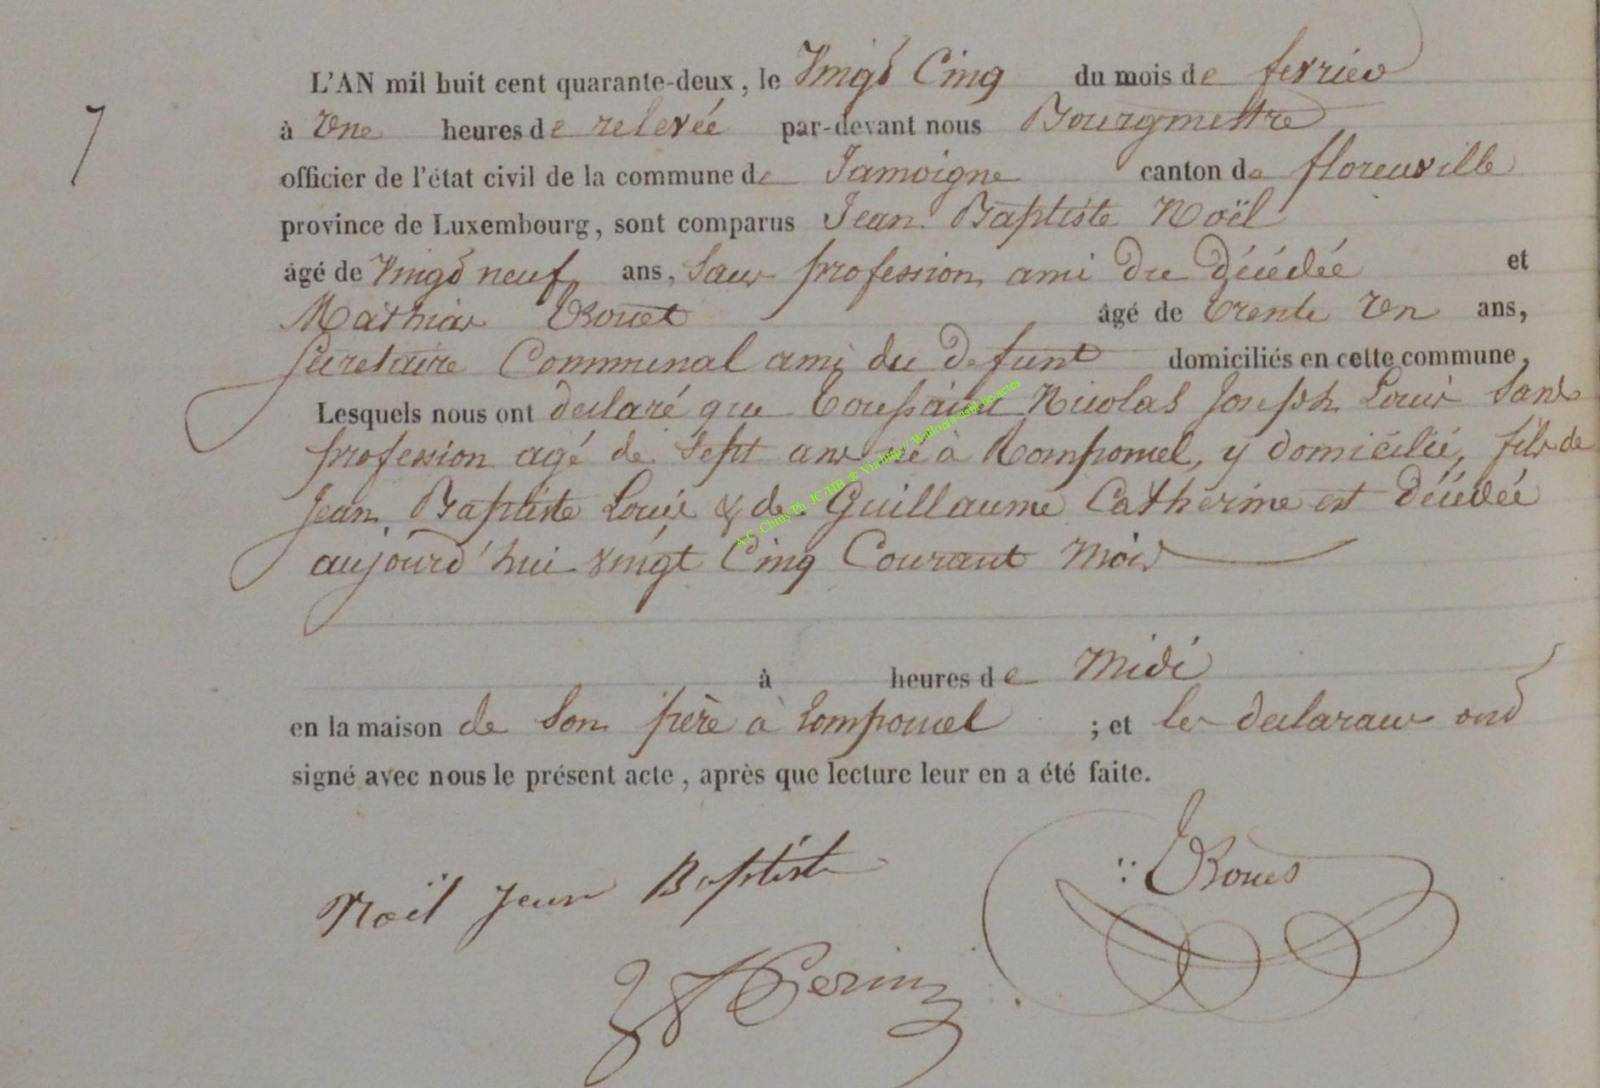 L'AN mil huit cent quarante-deux, le Vingt Cinq du mois de fevrier
7
à Une heures de relevée par-devant nous Bourgmestre
officier de l'état civil de la commune de Jamoigne canton de florenville
province de Luxembourg, sont comparus Jean Baptiste Noël
âgé de Vingt neuf ans, sans profession ami du décédé et
Mathias âgé de trente Un ans,
Secretaire Communal ami du defunt domiciliés en cette commune,
Lesquels nous ont declaré que toussaint Nicolas Joseph Louis Sans
profession agé de Sept ans né à Romponcel, y domicilié, fils de
Jean Baptiste Louis & de Guillaume Catherine est décédée
aujourd'hui vingt Cinq Courant Mois
à heures de Midi
en la maison de Son père à romponcel ; et les declarans ont
signé avec nous le présent acte, après que lecture leur en a été faite.
Noël Jean Baptiste